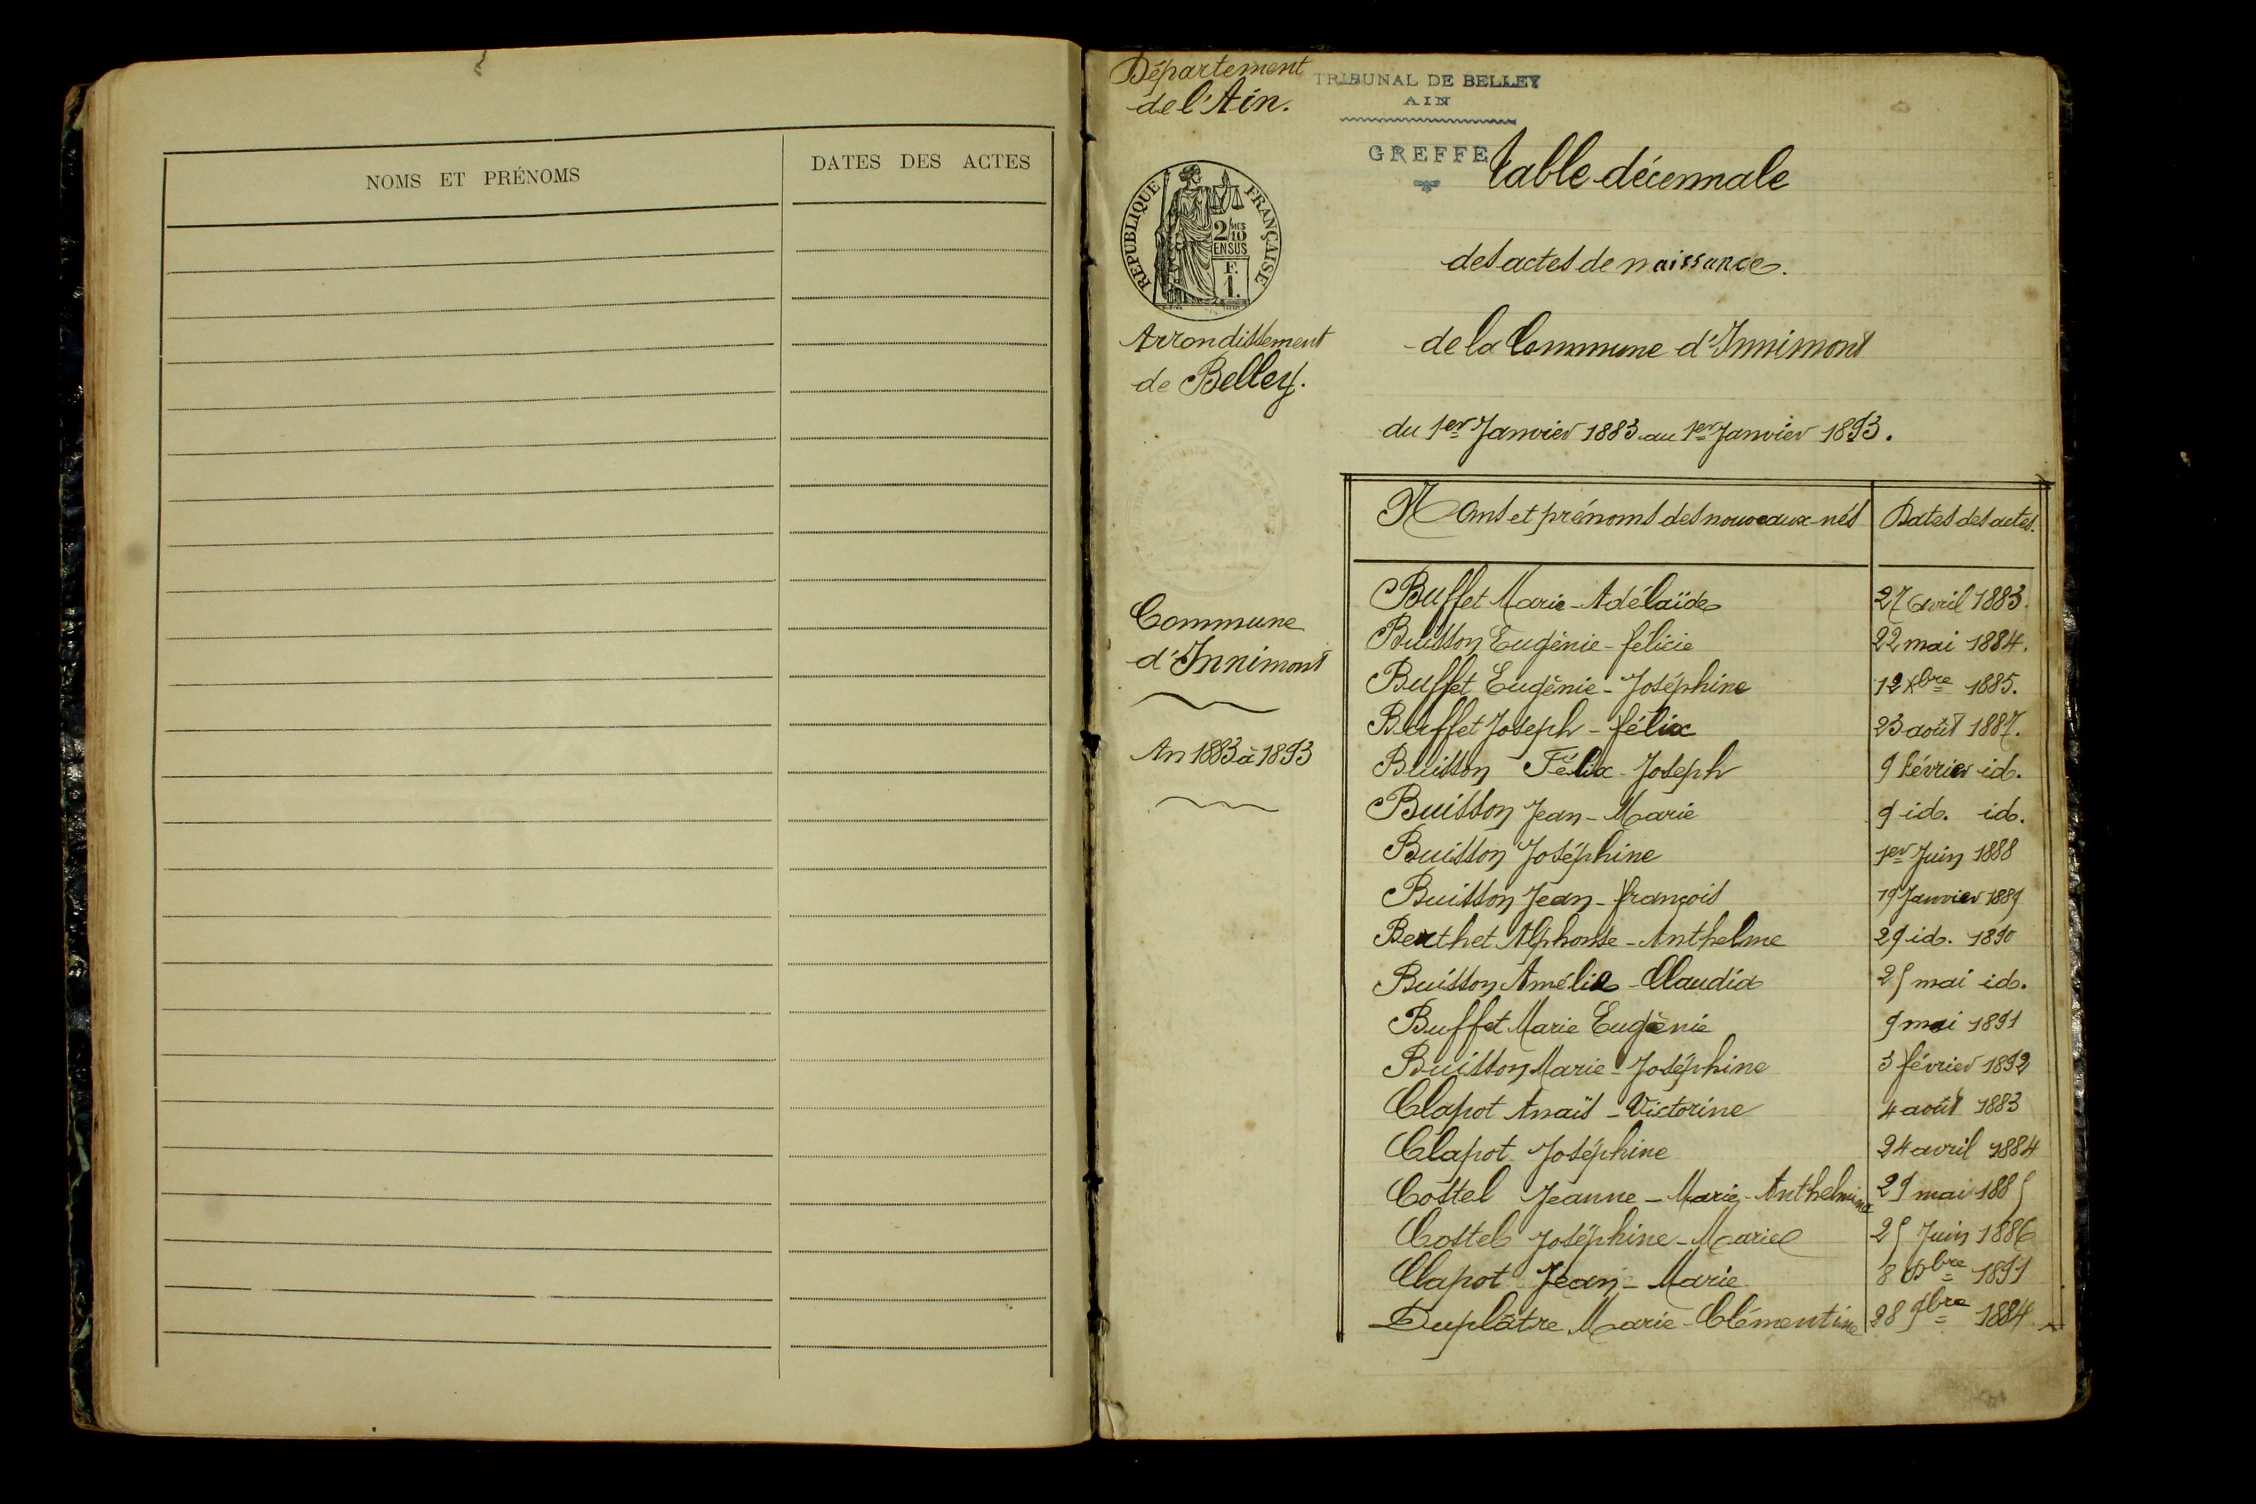 NOMS ET PRÉNOMS
DATES DES ACTES
Département
de l'Ain.
TRIBUNAL DE BELLEY
AIN
GREFFE
RÉPUBLIQUE FRANÇAISE
2/10 MES
EN SUS
F.
1.
Table décennale
des actes de naissance.
de la Commune d'Innimont
du 1er Janvier 1883 au 1er Janvier 1893.
Arrondissement
de Belley.
Commune
d'Innimont
An 1883 à 1893
Noms et prénoms des nouveaux-nés Dates des actes.
Buffet Marie-Adélaïde 27 avril 1883.
Buisson Eugénie-félicie 22 mai 1884.
Buffet Eugènie-Joséphine 12 xbre 1885.
Buffet Joseph-félix 23 août 1887.
Buisson Félix-Joseph 9 février id.
Buisson Jean-Marie 9 id. id.
Buisson Joséphine 1er Juin 1888
Buisson Jean-françois 19 Janvier 1889
Berthet Alphonse-Anthelme 29 id. 1890
Buisson Amélie-Claudia 25 mai id.
Buffet Marie Eugènie 9 mai 1891
Buisson Marie-Joséphine 3 février 1892
Clapot Anaïs-Victorine 4 août 1883
Clapot Joséphine 24 avril 1884
Costel Jeanne-Marie-Anthelmina 29 mai 1885
Costel Joséphine-Marie 25 Juin 1886
Clapot Jean-Marie 8 bre 1891
Duplâtre Marie-Clémentine 28 9bre 1884